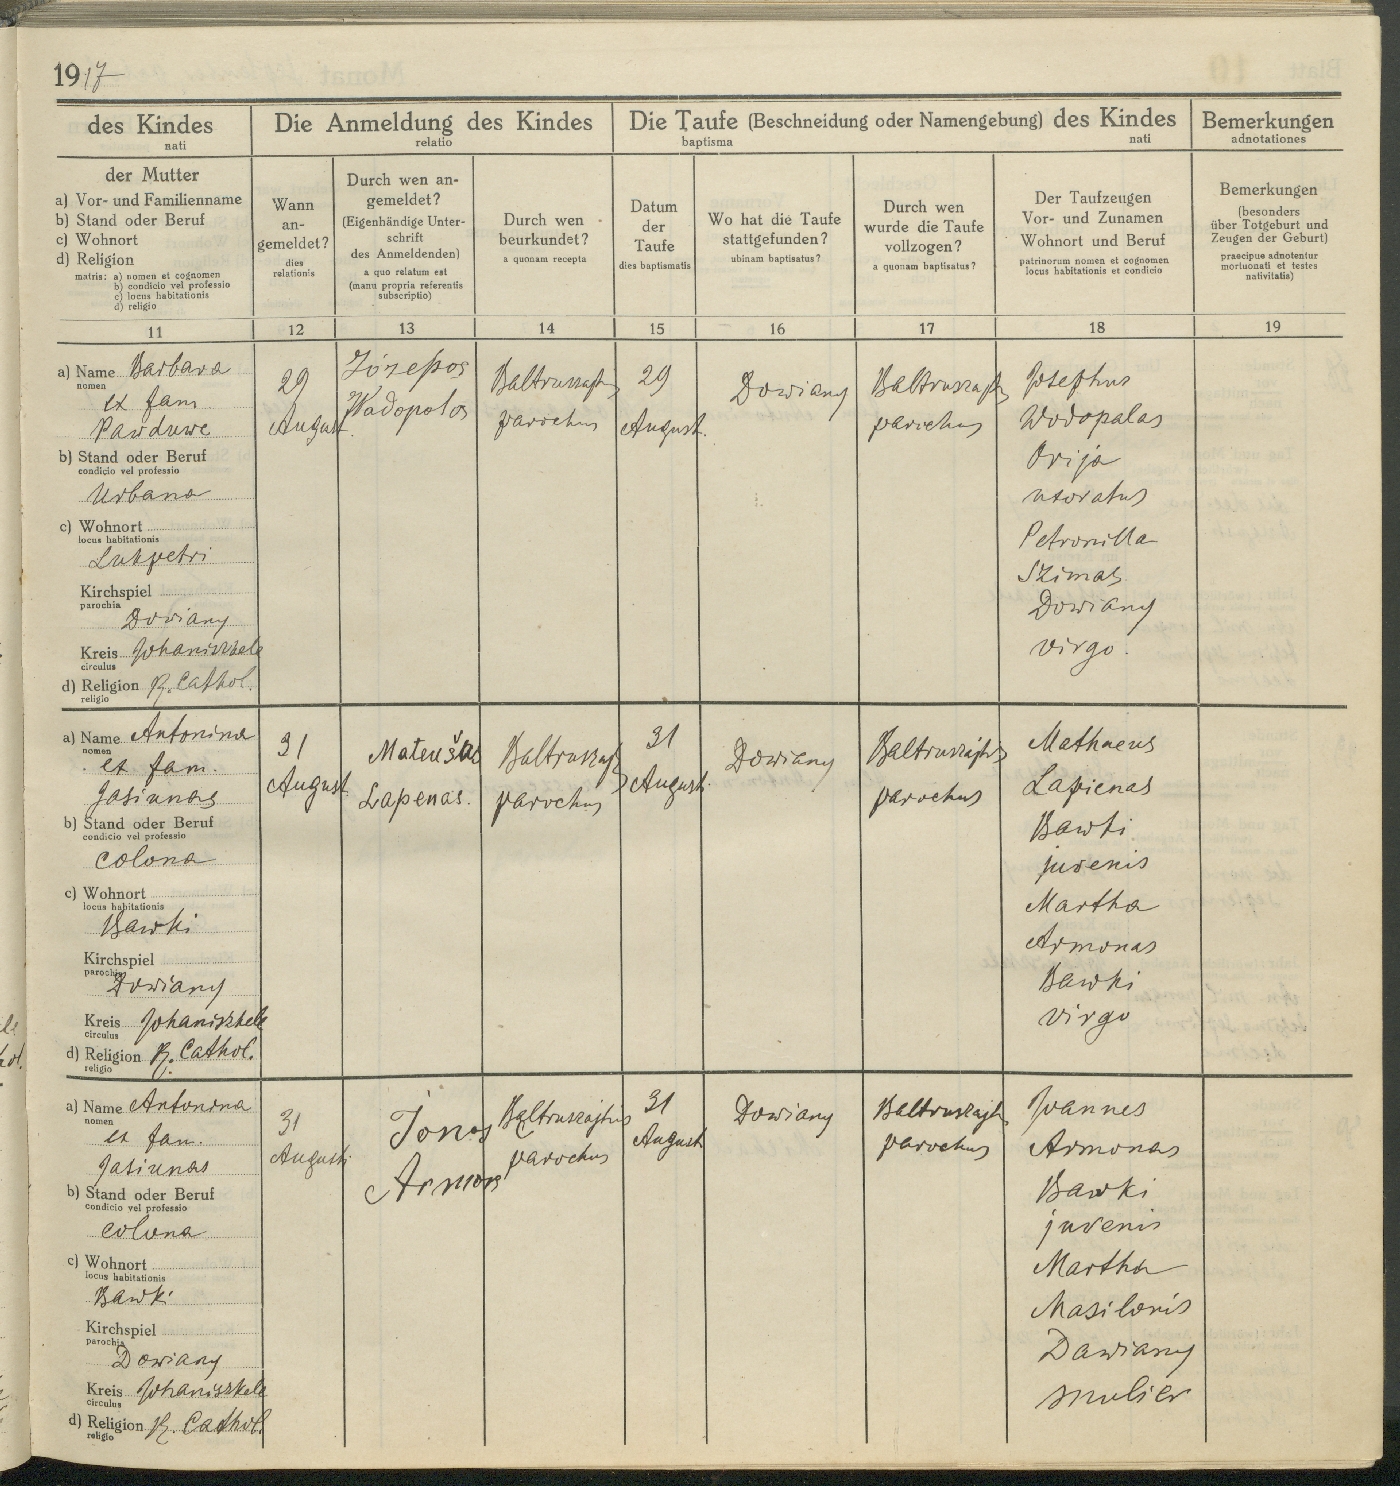 1917
des Kindes
nati
Die Anmeldung des Kindes
relatio
Die Taufe (Beschneidung oder Namengebung) des Kindes
baptisma nati
Bemerkungen
adnotationes
der Mutter
a) Vor- und Familienname
b) Stand oder Beruf
c) Wohnort
d) Religion
matris: a) nomen et cognomen
b) condicio vel professio
c) locus habitationis
d) religio
Wann
an-
gemeldet?
dies
relationis
Durch wen an-
gemeldet?
(Eigenhändige Unter-
schrift
des Anmeldenden)
a quo relatum est
(manu propria referentis
subscriptio)
Durch wen
beurkundet?
a quonam recepta
Datum
der
Taufe
dies baptismatis
Wo hat die Taufe
stattgefunden?
ubinam baptisatus?
Durch wen
wurde die Taufe
vollzogen?
a quonam baptisatus?
Der Taufzeugen
Vor- und Zunamen
Wohnort und Beruf
patrinorum nomen et cognomen
locus habitationis et condicio
Bemerkungen
(besonders
über Totgeburt und
Zeugen der Geburt)
praecipue adnotentur
mortuonati et testes
nativitatis)
11 12 13 14 15 16 17 18 19
a) Name Barbara
nomen
ex fam.
Pawduwe
b) Stand oder Beruf
condicio vel professio
Urbana
c) Wohnort
locus habitationis
Lukpetri
Kirchspiel
parochia
Dowiany
Kreis Johaniszkele
circulus
d) Religion R. Cathol.
religio
29
August.
Józepos
Wadopolos
Baltruszajtis
parochus
29
August.
Dowiany
Baltruszajtis
parochus
Josephus
Wodopalas
Orija
uxoratus
Petronilla
Szimas
Dowiany
virgo.
a) Name Antonina
nomen
ex fam.
Jasiunas
b) Stand oder Beruf
condicio vel professio
colona
c) Wohnort
locus habitationis
Bawki
Kirchspiel
parochia
Dowiany
Kreis Johaniszkele
circulus
d) Religion R. Cathol.
religio
31
August.
Mateušas
Lapenas.
Baltruszajtis
parochus
31
August.
Dowiany
Baltruszajtis
parochus
Mathaeus
Lapienas
Bawki
juvenis
Martha
Armonas
Bawki
virgo
a) Name Antonina
nomen
ex fam.
Jasiunas
b) Stand oder Beruf
condicio vel professio
colona
c) Wohnort
locus habitationis
Bawki
Kirchspiel
parochia
Dowiany
Kreis Johaniszkele
circulus
d) Religion R. Cathol.
religio
31
August.
Jonos
Armons
Baltruszajtis
parochus
31
August
Dowiany
Baltruszajtis
parochus
Joannes
Armonas
Bawki
juvenis
Martha
Masilonis
Dawiany
mulier